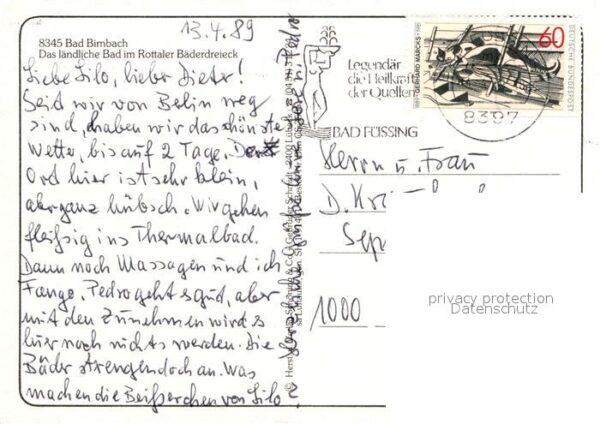 13.4.89
8345 Bad Birnbach
Das ländliche Bad im Rottaler Bäderdreieck
Liebe Lilo, lieber Dieter!
Seid wir von Belin weg
sind, haben wir das schönste
Wetter, bis auf 2 Tage. Der
Ord hier ist sehr klein,
aber ganz hübsch. Wir gehen
fleißig ins Thermalbad.
Dann noch Massagen und ich
Fango. Pedro geht es gud, aber
mit den Zunehmen wird es
hier noch nichts werden. Die
Bäder strengen doch an. Was
machen die Beißerchen von Lilo
Herzliche Grüße von und Pedro
Legendär
die Heilkraft
der Quellen
BAD FÜSSING
8397
60
DEUTSCHE BUNDESPOST
GERHARD MARCKS
Herrn u. Frau
D.
1000
privacy protection
Datenschutz